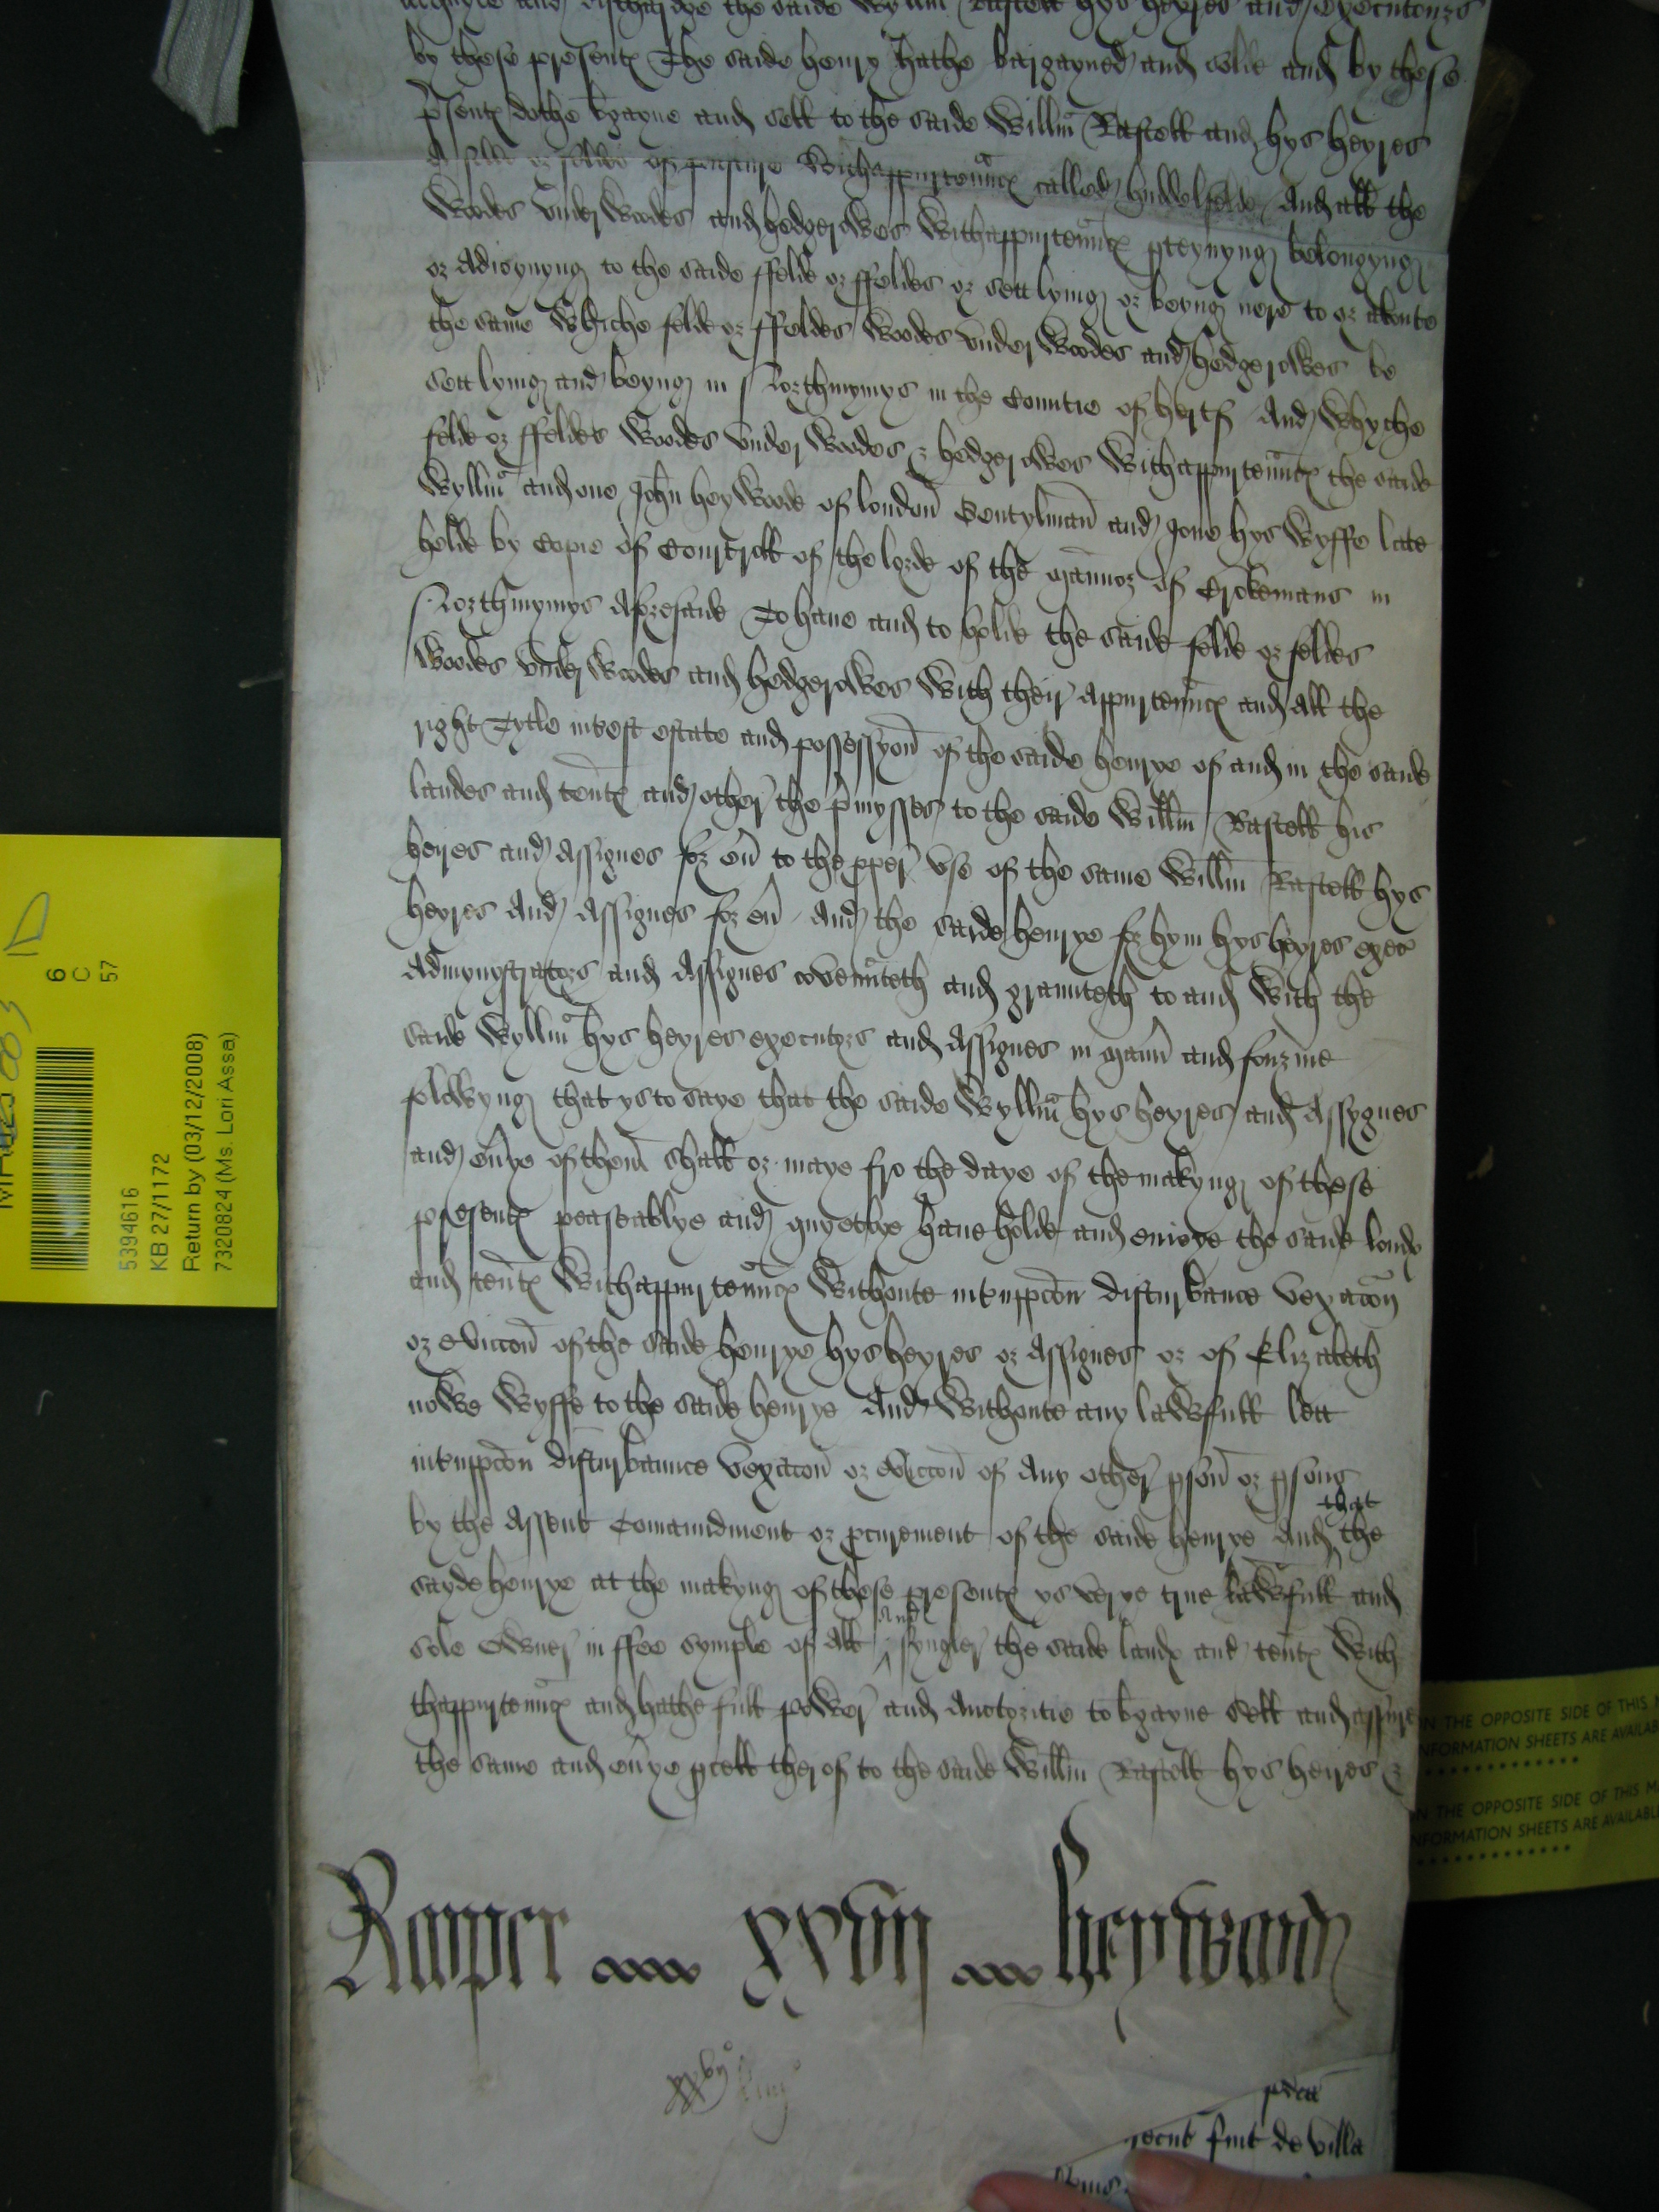 acquyte and discharge the saide Wyllm Rastell hys heyres and executours
by these presentes The saide henry hathe bargayned and solde and by these
psentes dothe bgayne and sell to the saide Willm Rastell and hys heyres
A felde or feldes of pasture withappurtenncs called hyddelfelde And all the
Woodes underwoodes and hedgerowes withappurtenncs pteynyng belongyng
or Adioynyng to the saide ffelde or ffeldes or sett lying or beyng nere to or aboute
the same Whiche felde or ffeldes Woodes underwoodes and hedgerowes be
sett lying and beyng in Northmymys in the Countie of hertf And whyche
felde or ffeldes Woodes underwoodes & hedgerowes withappurtenncs the saide
Wyllm and one John heywoode of london Gentylman and Jone hys Wyffe late
holde by Copie of Courtroll of the lorde of the mannor of Crokemans in
Northmymys Aforesaide To haue and to holde the saide felde or feldes
Woodes underwoodes and hedgerowes with their appurtenncs and all the
right Tytle intest estate and possessyon of the saide henrye of and in the saide
landes and tents and other the pmysses to the saide Willm Rastell his
heires and Assignes for eu to the pper use of the same Willm Rastell hys
heyres And Assignes for eu And the saide henrye for hym hys heyres exec
Admynystrators and Assignes covennteth and graunteth to and with the
saide Wyllm hys heyres executors and Assignes in mann and fourme
folowyng that ys to saye that the saide Wyllm hys heyres and Assygnes
and euye of them shall or maye fro the daye of the makyng of these
presents peaseablye and quyetlye haue holde and enioye the saide londs
and tents Withappurtenncs Withoute intrupcon disturbance vexacon
or eviccon of the saide henrye hys heyres or Assignes or of Elizabeth
nowe Wyffe to the saide henrye And withoute any lawfull lett
intrupcon disturbaunce vexacon or eviccon of Any other pson or psons
by the Assent Comaundment or pcurement of the saide henrye And that the
sayde henrye at the makyng of these presents ys verye true lawfull and
sole Owner in ffee symple of All And synguler the saide lands and tents With
thappurtenncs and hathe full power and Auctoritie to bgayne sell and assure
the same and euye pcell therof to the saide Willm Rastell hys heires &
Rooper xxviij heywood
pdca
fuit de villa
5394616
KB 27/1172
Return by (03/12/2008)
7320824 (Ms. Lori Assa)
6
C
57
N THE OPPOSITE SIDE OF THIS
NFORMATION SHEETS ARE AVAILAB
N THE OPPOSITE SIDE OF THIS M
NFORMATION SHEETS ARE AVAILABL